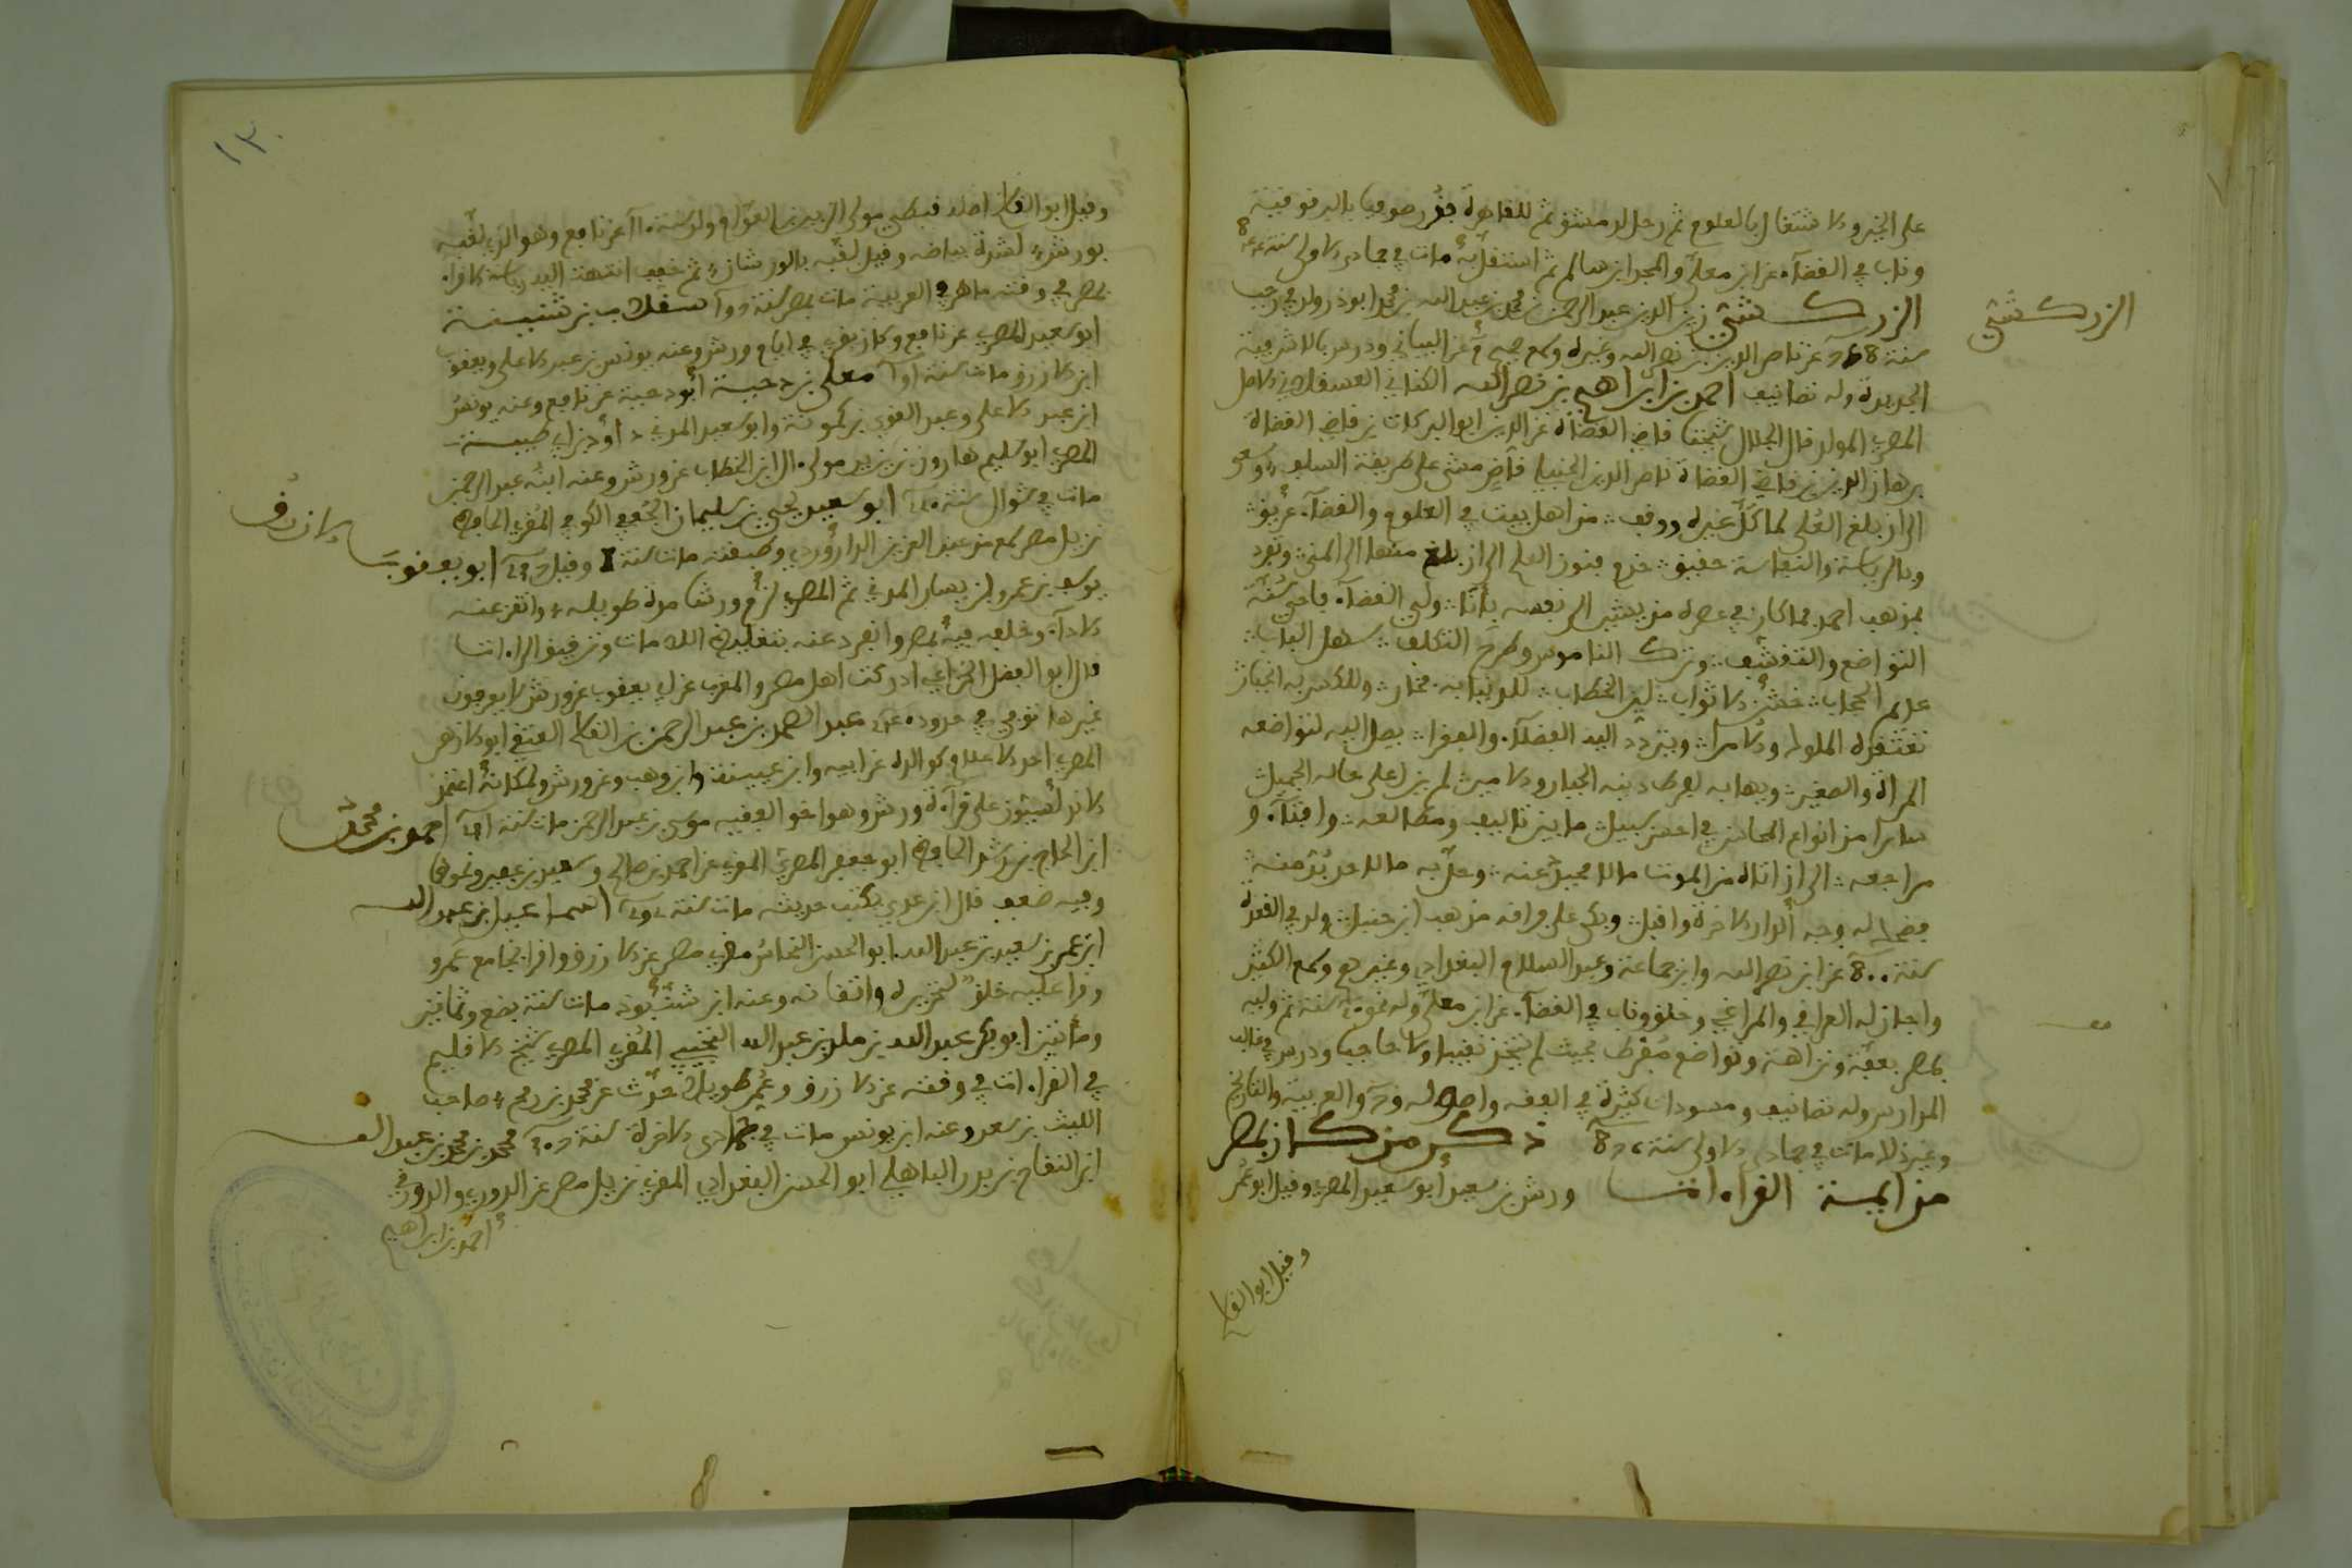 على الخير والاشتغال بالعلوم ثم رحل لدمشق ثم للقاهرة فقرر صوفيا بالبرقوقية
وناب في القضاء عن ابن معلى والمجد ابن سالم ثم استقل به مات في جمادى الاولى سنة
الزركشي زين الدين عبد الرحمن بن محمد بن عبد الله بن محمد ابو ذر ولد في رجب
الزركشي
سنة عن ناصر الدين بن نصر الله وغيره وسمع صحيح م عن البياني ودرس بالاشرفية
الجديدة وله تصانيف احمد بن ابراهيم بن نصر الله الكناني العسقلاني الاصل
المصري المولد قال الجلال شيخنا قاضي القضاة عز الدين ابو البركات بن قاضي القضاة
برهان الدين بن قاضي القضاة ناصر الدين الحنبلي قاض مشى على طريقة السلف وسعى
الى ان بلغ العلى لما كل غيره ووقف من اهل بيت في العلوم والقضاء عريق
وبالرياسة والنفاسة حقيق خدم فنون العلم الى ان بلغ منها الى المنى وتفرد
بمذهب احمد فما كان في عصره من يشير الى نفسه بأنا ولي القضاء فاحيى سنة
التواضع والتقشف وترك الناموس وطرح التكلف سهل الباب
عديم الحجاب خشن الاثواب لين الخطاب للدنيا به فخار وللكسر به انجبار
تعتقده الملوك والامراء ويتردد اليه الفضلاء والفقراء يصل اليه لتواضعه
المرأة والصغير ويهابه لفرط دينه الجبار والامير لم يزل على حاله الجميل
سائرا من انواع المحاسن في احسن سبيل ما بين تأليف ومطالعة وافتاء و
مراجعة الى ان اتاه من الموت ما لا محيد عنه وحل به ما لا بد منه
فضحك له وجه الدار الاخرة واقبل وبكى على فراقه مذهب ابن حنبل ولد في القعدة
سنة 800 عن ابن نصر الله وابن جماعة وعبد السلام البغدادي وغيرهم وسمع الكثير
واجاز له العراقي والمراغي وخلق وناب في القضاء عن ابن معلى وله نحو سنة ثم وليه
بمصر بعفة ونزاهة وتواضع مفرط بحيث لم يتخذ نقيبا ولا حاجبا ودرس في غالب
المدارس وله تصانيف ومسودات كثيرة في الفقه واصوله و والعربية والتاريخ
وغير ذلك مات في جمادى الاولى سنة ذكر من كان بمصر
من ايمة القراءات ورش بن سعيد ابو سعيد المصري وقيل ابو عمر
وقيل ابو القاسم
١٣٠
وقيل ابو القاسم اصله قبطي مولى الزبير بن العوام ولد سنة عن نافع وهو الذي لقبه
بورش لشدة بياضه وقيل لقبه بالورشان ثم خفف انتهت اليه رياسة الاقراء
بمصر في وقته ماهر في العربية مات بمصر سنة سقلاب بن شنينة
ابو سعيد المصري عن نافع وكان يقرئ في ايام ورش وعنه يونس بن عبد الاعلى ويعقوب
ابن الازرق مات سنة معلى بن دحية ابو دحية عن نافع وعنه يونس
ابن عبد الاعلى وعبد القوي بن كمونة وابو سعيد المدني داود بن ابي طيبة
المصري ابو سليم هارون بن يزيد مولى ال ابن الخطاب عن ورش وعنه ابنه عبد الرحمن
مات في شوال سنة ابو سعيد يحيى بن سليمان الجعفي الكوفي المقري الحافظ
نزيل مصر سمع من عبد العزيز الدراوردي وطبقته مات سنة وقيل ابو يعقوب
الازرق
يوسف بن عمرو بن يسار المدني ثم المصري لزم ورشا مدة طويلة واتقن عنه
الاداء وخلفه فيه بمصر وانفرد عنه بتغليظ اللامات وترقيق الراءات
قال ابو الفضل الخزاعي ادركت اهل مصر والمغرب على يعقوب عن ورش لا يعرفون
غيرها توفي في حدود عبد الصمد بن عبد الرحمن بن القاسم العتقي ابو الازهر
المصري احد الاعلام كوالده عن ابيه وابن عيينة وابن وهب وعن ورش ولمكانه اعتمد
الاندلسيون على قراءة ورش وهو اخو الفقيه موسى بن عبد الرحمن مات سنة احمد بن محمد
ابن الحجاج بن رشد الحافظ ابو جعفر المصري المقري عن احمد بن صالح وسعيد بن عفير ونحوها
وفيه ضعف قال ابن عدي يكتب حديثه مات سنة اسماعيل بن عبد الله
ابن عمر بن سعيد بن عبد الله ابو الحسن النحاس مقري مصر عن الازرق واقرا بجامع عمرو
وقرا عليه خلق لتحريره واتقانه وعنه ابن شنبوذ مات سنة بضع وثمانين
ومائتين ابو بكر عبد الله بن ملك بن عبد الله التجيبي المقري المصري شيخ الاقليم
في القراءات في وقته عن الازرق وعمر طويلا حدث عن محمد بن رمح صاحب
الليث بن سعد وعنه ابن يونس مات في جمادى الاخرة سنة محمد بن محمد بن عبد الله
ابن النفاح بن بدر الباهلي ابو الحسن البغدادي المقري نزيل مصر عن الدوري والدورقي
احمد بن ابراهيم